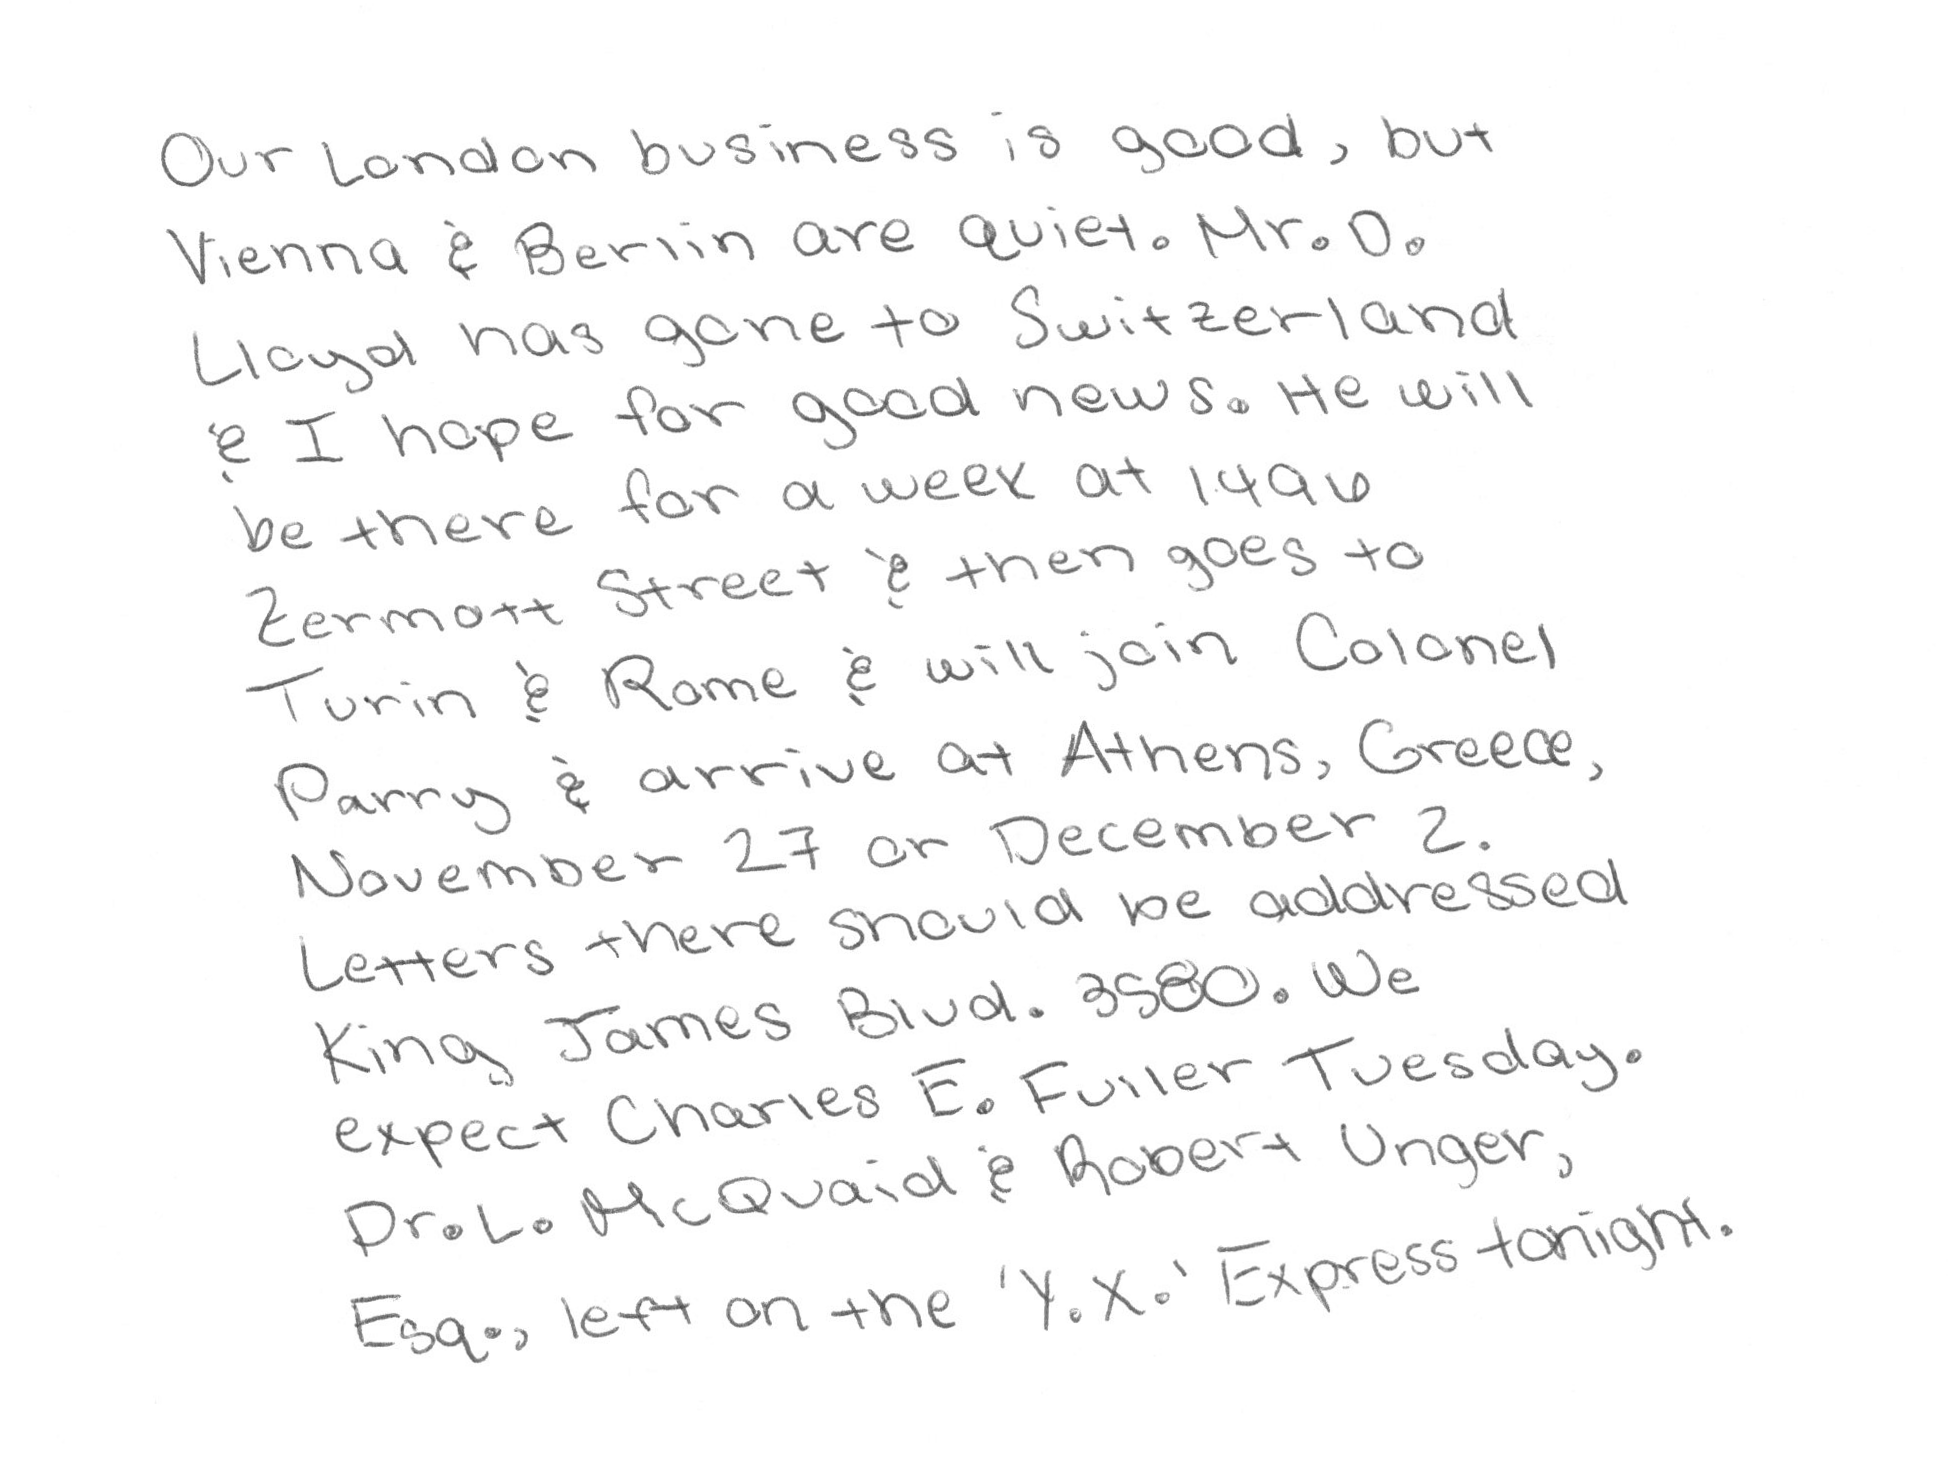 Our London business is good, but
Vienna & Berlin are quiet. Mr. D.
Lloyd has gone to Switzerland
& I hope for good news. He will
be there for a week at 1496
Zermott Street & then goes to
Turin & Rome & will join Colonel
Parry & arrive at Athens, Greece,
November 27 or December 2.
Letters there should be addressed
King James Blvd. 3580. We
expect Charles E. Fuller Tuesday.
Dr. L. McQuaid & Robert Unger,
Esq., left on the 'Y.X.' Express tonight.